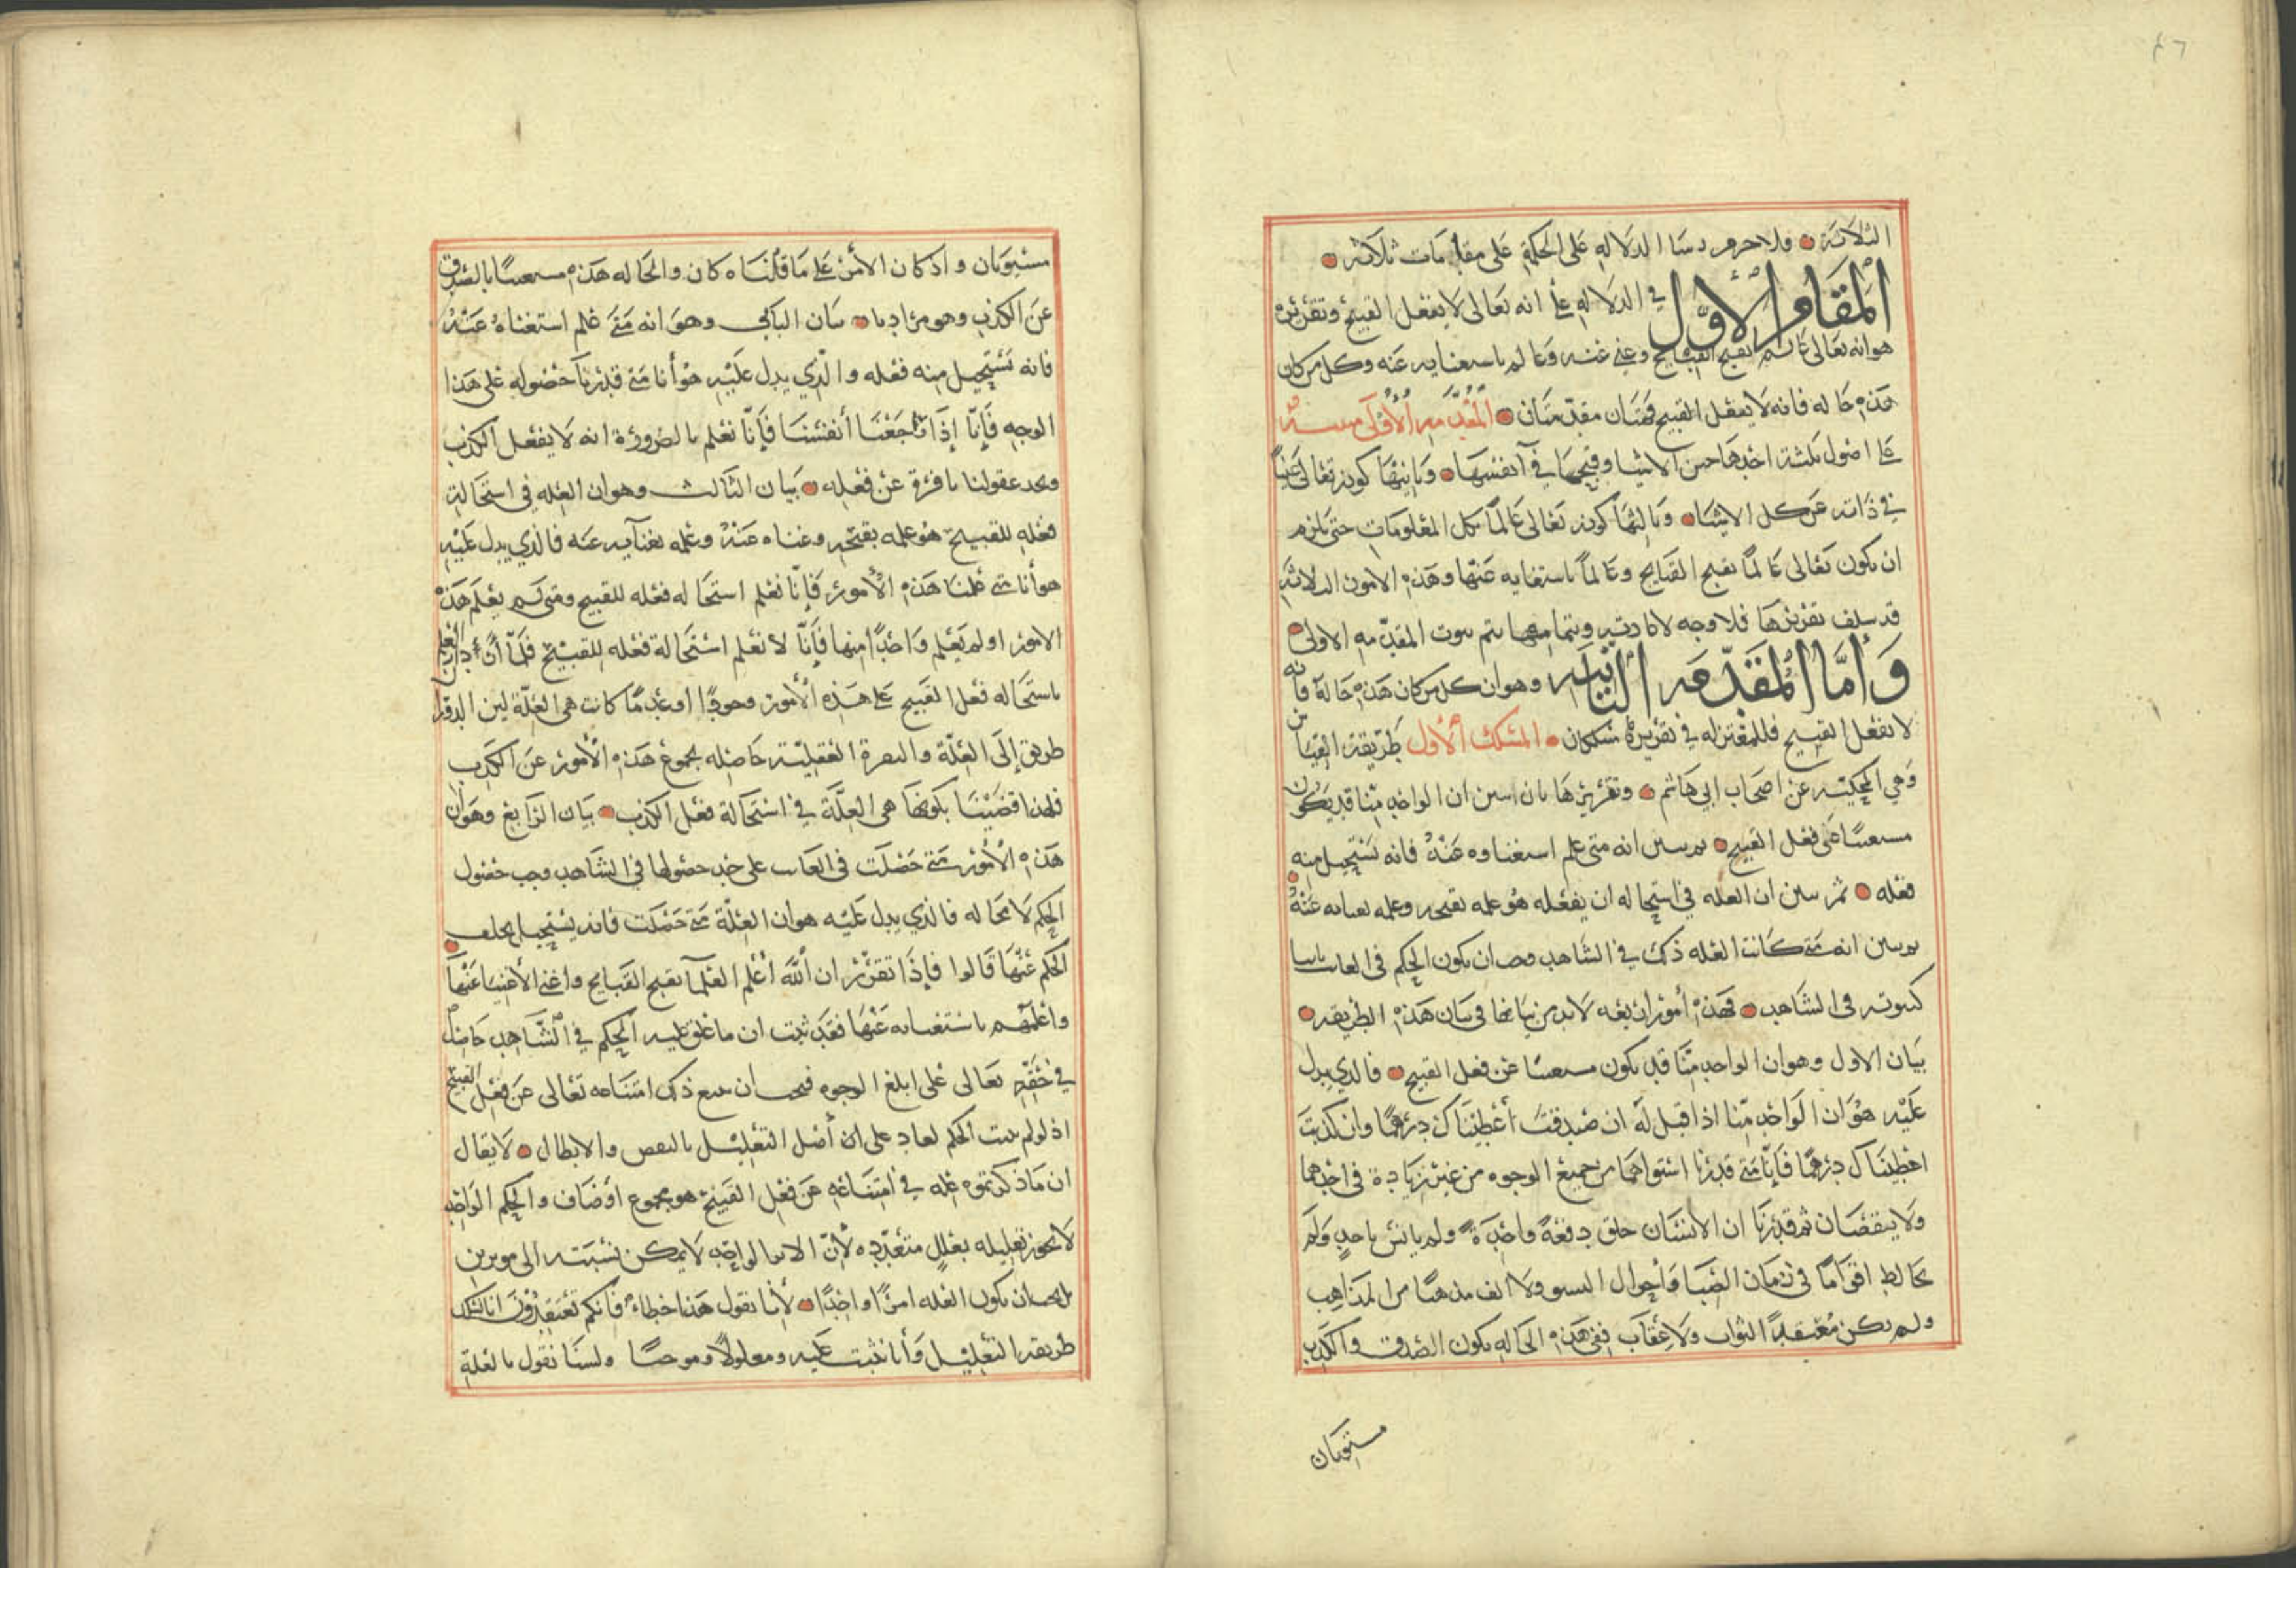 ٤٦
الثلاثة فلا جرم رتبنا الدلاله على الحكمة على مقامات ثلاثه
المقام الأول في الدلاله على انه تعالى لا يفعل القبيح وتقريره
هو انه تعالى عالم بقبح القبايح وغني عنه وعالم باستغنايه عنه وكل من كان
هذه حاله فانه لا يفعل القبيح فهتان مقدمتان المقدمه الأولى مبنيه
على اصول ثلثة احدها حسن الاشيا وقبحها في أنفسها وثانيها كونه تعالى غنياً
في ذاته عن كل الاشياء وثالثها كونه تعالى عالماً بكل المعلومات حتى يلزم
ان يكون تعالى عالماً بقبح القبايح وعالماً باستغنايه عنها وهذه الامور الثلاثة
قد سلف تقريرها فلا وجه لاعادته وبتمامها يتم ثبوت المقدمه الاولى
وأما المقدمه الثانيه وهو ان كل من كان هذه حالة فانه
لا يفعل القبيح فللمعتزله في تقريره مسلكان المسلك ألأول طريقة القياس
وهي المحكيه عن اصحاب ابي هاشم وتقريرها بان نبين ان الواحد منا قد يكون
مستغنيا عن فعل القبيح ثم نبين انه متى علم استغناوه عنه فانه يستحيل منه
فعله ثم نبين ان العله في استحاله ان يفعله هو علمه بقبحه وعلمه بغنايه عنه
ثم نبين انه متى كانت العله ذلك في الشاهد وجب ان يكون الحكم في الغايب ثابتا
كثبوته في الشاهد فهذه أمور اربعه لا بد من بيانها في بيان هذه الطريقه
بيان الاول وهو ان الواحد منا قد يكون مستغنيا عن فعل القبيح فالذي يدل
عليه هو ان الواحد منا اذا قيل له ان صدقت أعطيناك درهما وان كذبت
اعطيناك درهما فإنا متى قدرنا استواهما من جميع الوجوه من غير زيادة في احدهما
ولا ينقصان ثم قدرنا ان الانسان خلق دفعة واحدة ولم يانس باحد ولم
يخالط اقواما في زمان الصبا وأحوال النشو ولا الف مذهبا من المذاهب
ولم يكن معتقدا الثواب ولا عقاب ففي هذه الحاله يكون الصدق والكذب
مستويان
مستويان واذ كان الأمر على ما قلناه كان والحاله هذه مستغنيا بالصدق
عن الكذب وهو مرادنا بيان الثاني وهو انه متى علم استغناه عنه
فانه يستحيل منه فعله والذي يدل عليه هو أنا متى قدرنا حصوله على هذا
الوجه فإنا إذا راجعنا أنفسنا فإنا نعلم بالضرورة انه لا يفعل الكذب
ونجد عقولنا نافرة عن فعله بيان الثالث وهو ان العله في استحالة
فعله للقبيح هو علمه بقبحه وغناه عنه وعلمه بغنايه عنه فالذي يدل عليه
هو أنا متى علمنا هذه الأمور فإنا نعلم استحاله فعله للقبيح ومتى لم يعلم هذه
الامور او لم يعلم واحدا منها فإنا لا نعلم استحالة فعله للقبيح فلما أن دار العلم
باستحاله فعل القبيح على هذه الأمور وجودا وعدما كانت هي العلة لين الدوران
طريق إلى العلة والنصرة العقلية حاصله بمجموع هذه الأمور عن الكذب
فلهذا قضينا بكونها هي العلة في استحالة فعل الكذب بيان الرابع وهو ان
هذه الأمور متى حصلت في الغايب على حد حصولها في الشاهد وجب حصول
الحكم لا محاله فالذي يدل عليه هو ان العلة متى حصلت فانه يستحيل تخلف
الحكم عنها قالوا فإذا تقرر ان الله أعلم العلما بقبح القبايح واغنى الأغنيا عنها
واعلمهم باستغنايه عنها فقد ثبت ان ما علق عليه الحكم في الشاهد حاصل
في حقه تعالى على ابلغ الوجوه فيجب ان يتبع ذلك امتناعه تعالى عن فعل القبيح
اذ لو لم يثبت الحكم لعاد على ان أصل التعليل بالنقص والابطال لا يقال
ان ما ذكرتموه عله في امتناعه عن فعل القبيح هو مجموع اوصاف والحكم الواحد
لا يجوز تعليله بعلل متعدده لأن الاثر الواحد لا يمكن نسبته الى موثرين
بل يجب ان يكون العله امرا واحدا لأنا نقول هذا خطاء فانكم تعتقدون انا نسلك
طريقة التعليل وأنا نثبت عليه ومعلولا وموجبا ولسنا نقول بالعلة